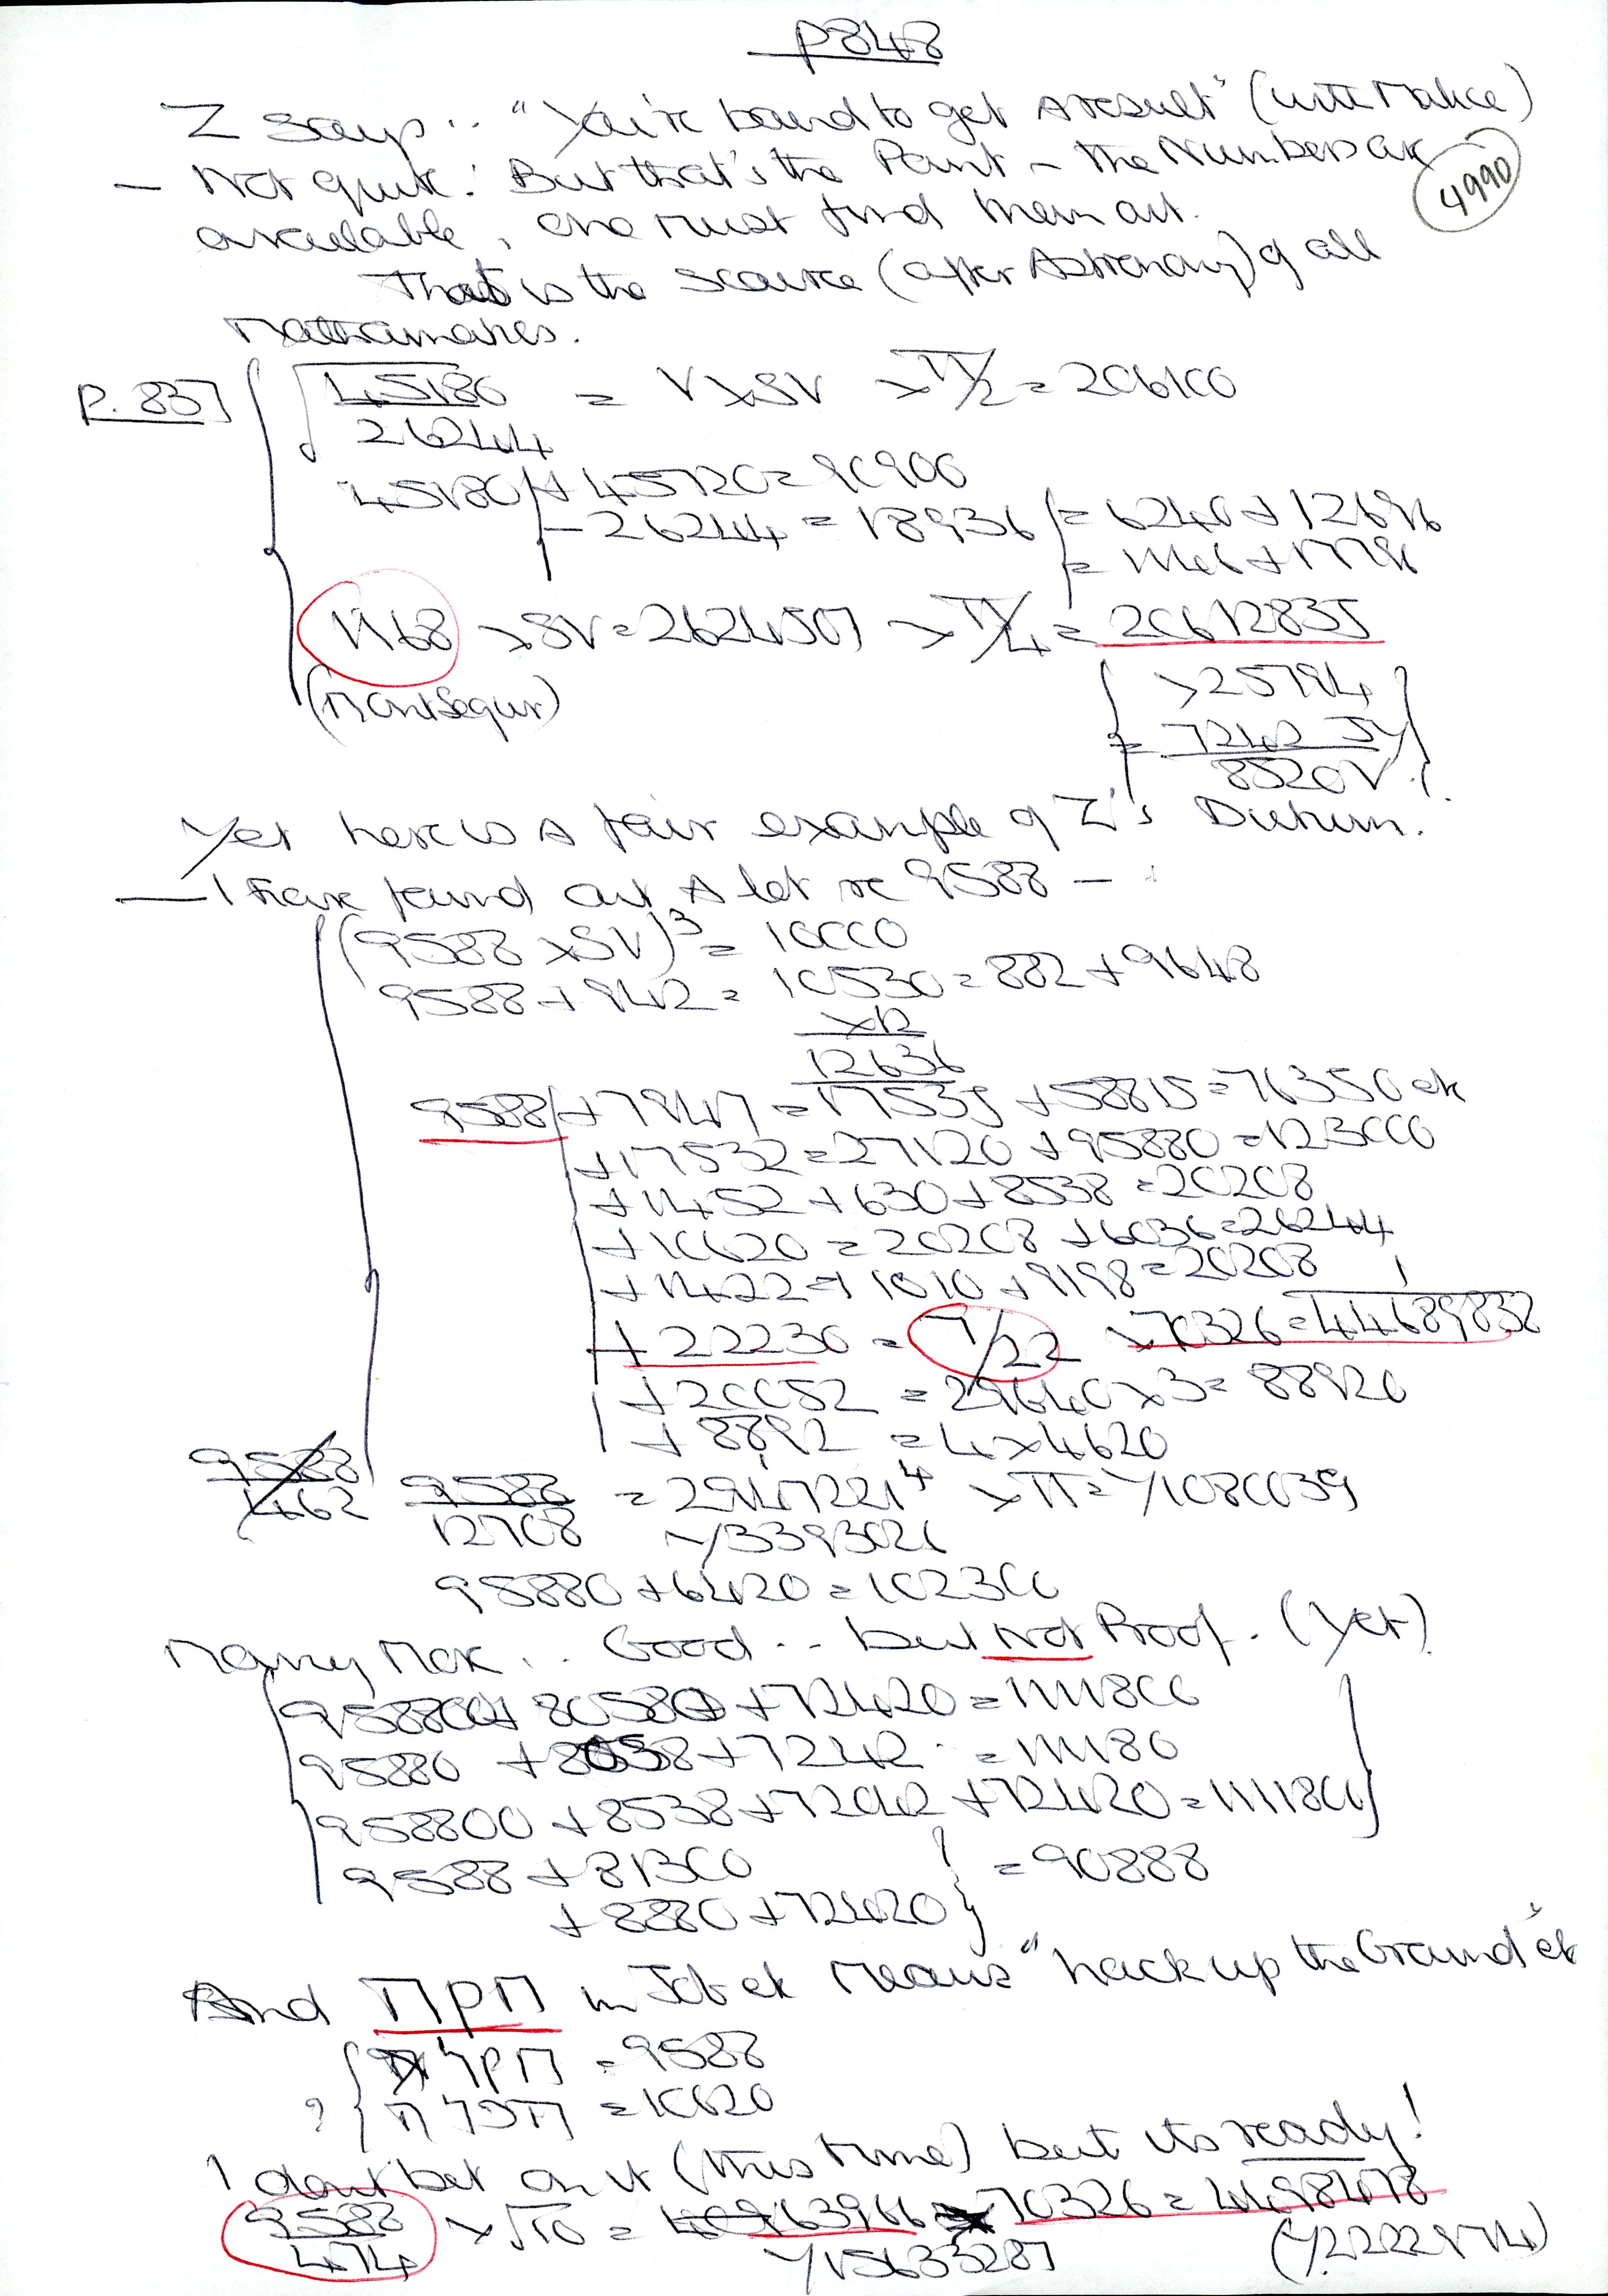 P848
Z says .. "You're bound to get a result" (with Malice)
— Not quite: But that's the Point – the Numbers are
4990
available, one must find them out.
That is the source (after Astronomy) of all
Mathamatics.
P. 837
√45180/26244 = V x SV x π/2 = 206100
45180 + 45720 = 90900
- 26244 = 18936 = 6240 + 12696
1168 x SV = 2624507 x π/4 = 20612835
(MontSegur)
x 25794
= 7242 JY
8520 V
Yet here is a fair example of Z's Dictum.
— I have found out a lot re 9588 –
(9588 x SV)³ = 10000
9588 + 942 = 10530 = 882 + 9648
x 12
12636
9588 + 7947 = 17535 + 58815 = 76350 etc
+ 17532 = 27120 + 95880 = 123000
+ 1452 + 630 + 8538 = 20208
+ 10620 = 20208 + 6036 = 26244
+ 1422 + 1010 + 9198 = 20208
+ 22230 = 7/22 x 70326 = 44689832
+ 20052 = 29640 x 3 = 88920
+ 8892 = 4 x 4620
9588/462
9588/12708 = 2947221⁴ x π = Y1080039
Y3393026
95880 + 6420 = 102300
Many More .. Good .. but Not Proof. (Yet)
958800 + 80580 + 72420 = 1111800
95880 + 8058 + 7242 = 111180
958800 + 8538 + 72042 + 72420 = 1111800
9588 + 81300
+ 8880 + 72420
= 90888
And ПРП in Job etc Means "hack up the Ground" etc
= 9588
? = 10620
I don't bet on it (this time) but its ready!
9588/474 x √10 = 63966 x 70326 = 44984178
Y15633287
(Y22228714)